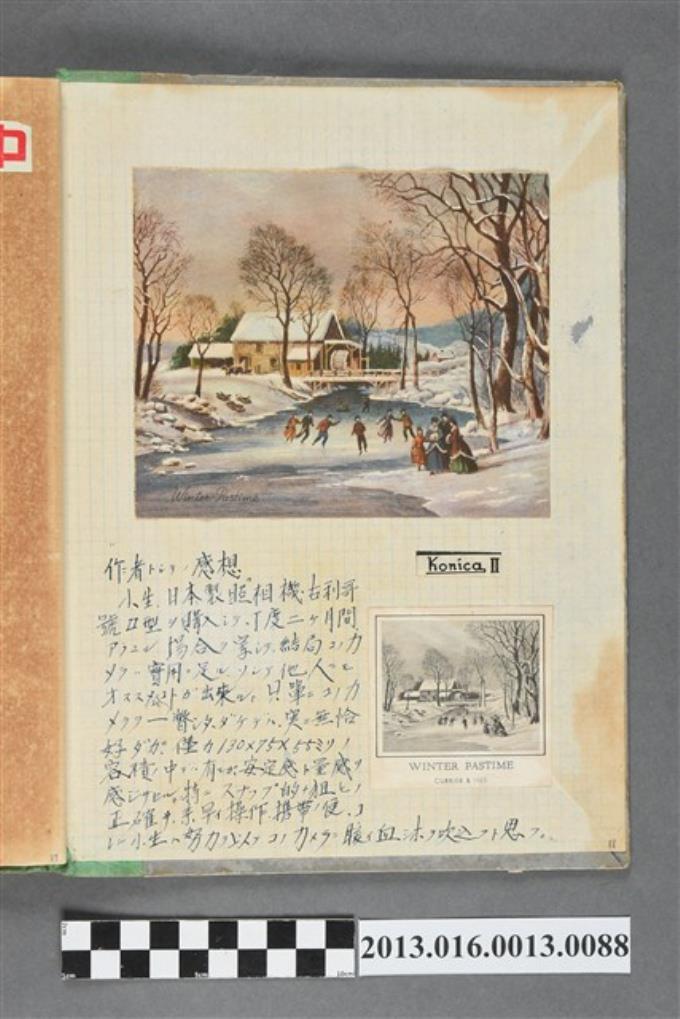 中
Winter Pastime
Konica, II
"作者トシテノ感想"
小生、日本製照相機、古利哥
號II型ヲ購入シテ、丁度二ヶ月間
場合ヲ 結局コノカ
メラハ實用ニ足ル 他人ニモ
オススメ 出來ル。只單ニコノカ
メラヲ一瞥シタダケデハ、実ニ無恰
好ダガ、僅カ130×75×55ミリノ
容積ノ中ニ有 安定感ト量感ヲ
感ジサセル。特ニスナップ的ナ狙ヒノ
正確サ、素早イ操作、携帶ノ便、コ
小生ハ努力 コノカメラニ 血 ヲ吹込ムト思フ。
WINTER PASTIME
CURRIER & IVES
2013.016.0013.0088